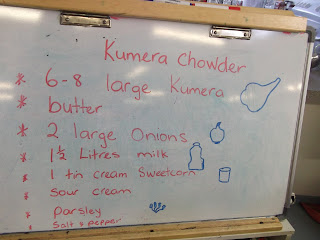 Kumera Chowder
* 6-8 large Kumera
* butter
* 2 large Onions
* 1½ Litres milk
* 1 tin cream Sweetcorn
* Sour cream
* Parsley
* Salt & pepper